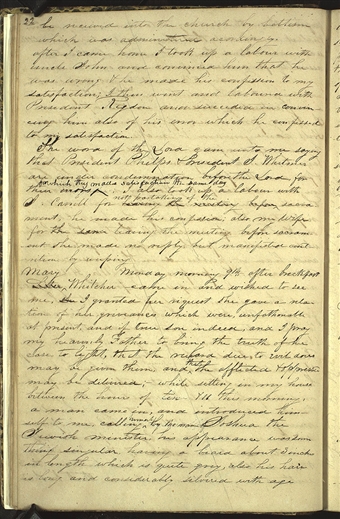 22 be received into the church by baptism
which was administered accordingly
after I came home I took up a labour with
uncle John and convinced him that he
was wrong & he made his confession to my
satisfaction; I then went and laboured with
President Rigdon and succeeded in convin
cing him also of his error which he confessed
to my satisfaction.
The word of the Lord came unto me saying
that President Phelps & President J. Whitmer
are under condemnation before the Lord, for
their errors
for which they made satisfaction the same day
I also took up a labour with
J. Carrill for
not partaking of the
leaving the meeting before sacra
ment; he made the confession; also my wife
for the same leaving the meeting before sacram
ent she made no reply, but manifested cont
rition by weeping
Mary Monday morning 9th after breckfast
Whitcher came in and wished to see
me, I granted her request she gave a rela
tion of her grievances which were, unfathomable
at present, and if true sore indeed, and I pray
my heavenly Father to bring the truth of her
case to light, that the reward due to evil doers
may be given them, and
that
the afflicted & oppressed
may be delivered;— while setting in my house
between the hours of ten & 11 this morning
a man came in, and introduced him
self to me, calling
himself
by the name of Joshua the
Jewish minister, his appearance was some
thing singular, having a beard about 3 inches
in length which is quite grey, also his hair
is long and considerably silvered with age